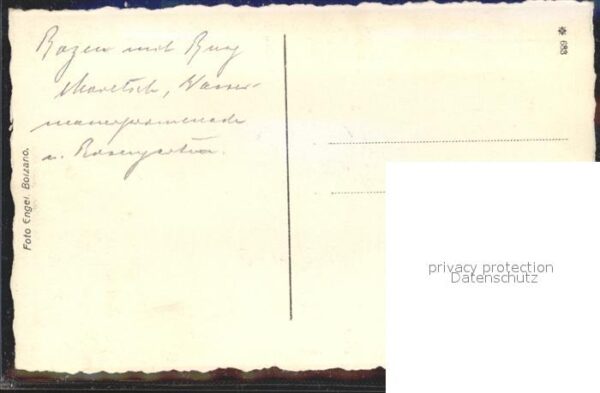 Bozen mit Burg
Maretsch, Wasser-
mauerpromenade
u. Rosengarten.
Foto Engel. Bolzano.
✱ 683
privacy protection
Datenschutz